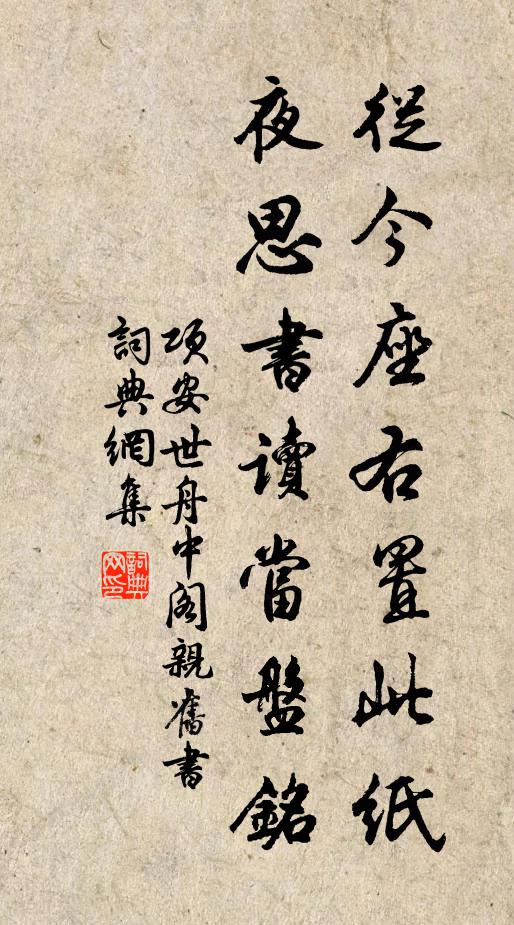 從今座右置此紙
夜思書讀當盤銘
項安世舟中閣親舊書
詞典網集
詞典網印